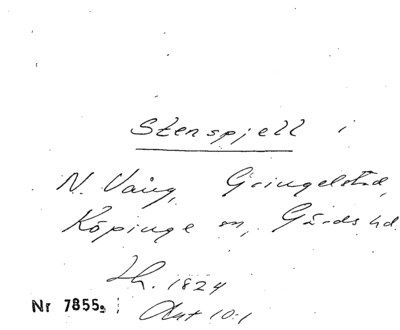 Stenspjell i
N. Vång, Gringelstad,
Köpinge sn, Gärds hd.
Lh. 1824
Aut 10:1
Nr 7855g